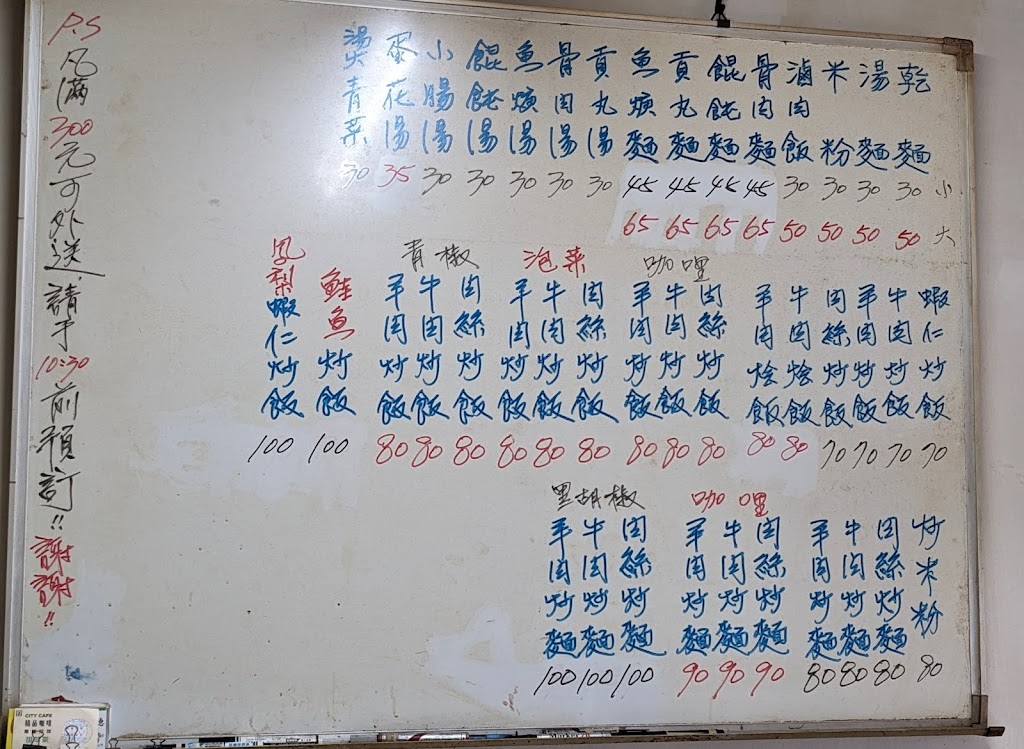 小 大
乾麵 30 50
湯麵 30 50
米粉 30 50
滷肉飯 30 50
骨肉麵 45 65
餛飩麵 45 65
貢丸麵 45 65
魚焿麵 45 65
貢丸湯 30
骨肉湯 30
魚焿湯 30
餛飩湯 30
小腸湯 30
蛋花湯 35
燙青菜 30
蝦仁炒飯 70
牛肉炒飯 70
羊肉炒飯 70
肉絲炒飯 70
牛肉烩飯 80
羊肉烩飯 80
咖哩
肉絲炒飯 80
牛肉炒飯 80
羊肉炒飯 80
泡菜
肉絲炒飯 80
牛肉炒飯 80
羊肉炒飯 80
青椒
肉絲炒飯 80
牛肉炒飯 80
羊肉炒飯 80
鮭魚炒飯 100
凤梨蝦仁炒飯 100
炒米粉 80
肉絲炒麵 80
牛肉炒麵 80
羊肉炒麵 80
咖哩
肉絲炒麵 90
牛肉炒麵 90
羊肉炒麵 90
黑胡椒
肉絲炒麵 100
牛肉炒麵 100
羊肉炒麵 100
P.S 凡滿300元可外送,請于10:30前預訂!! 謝謝!!
CITY CAFE
精品咖啡